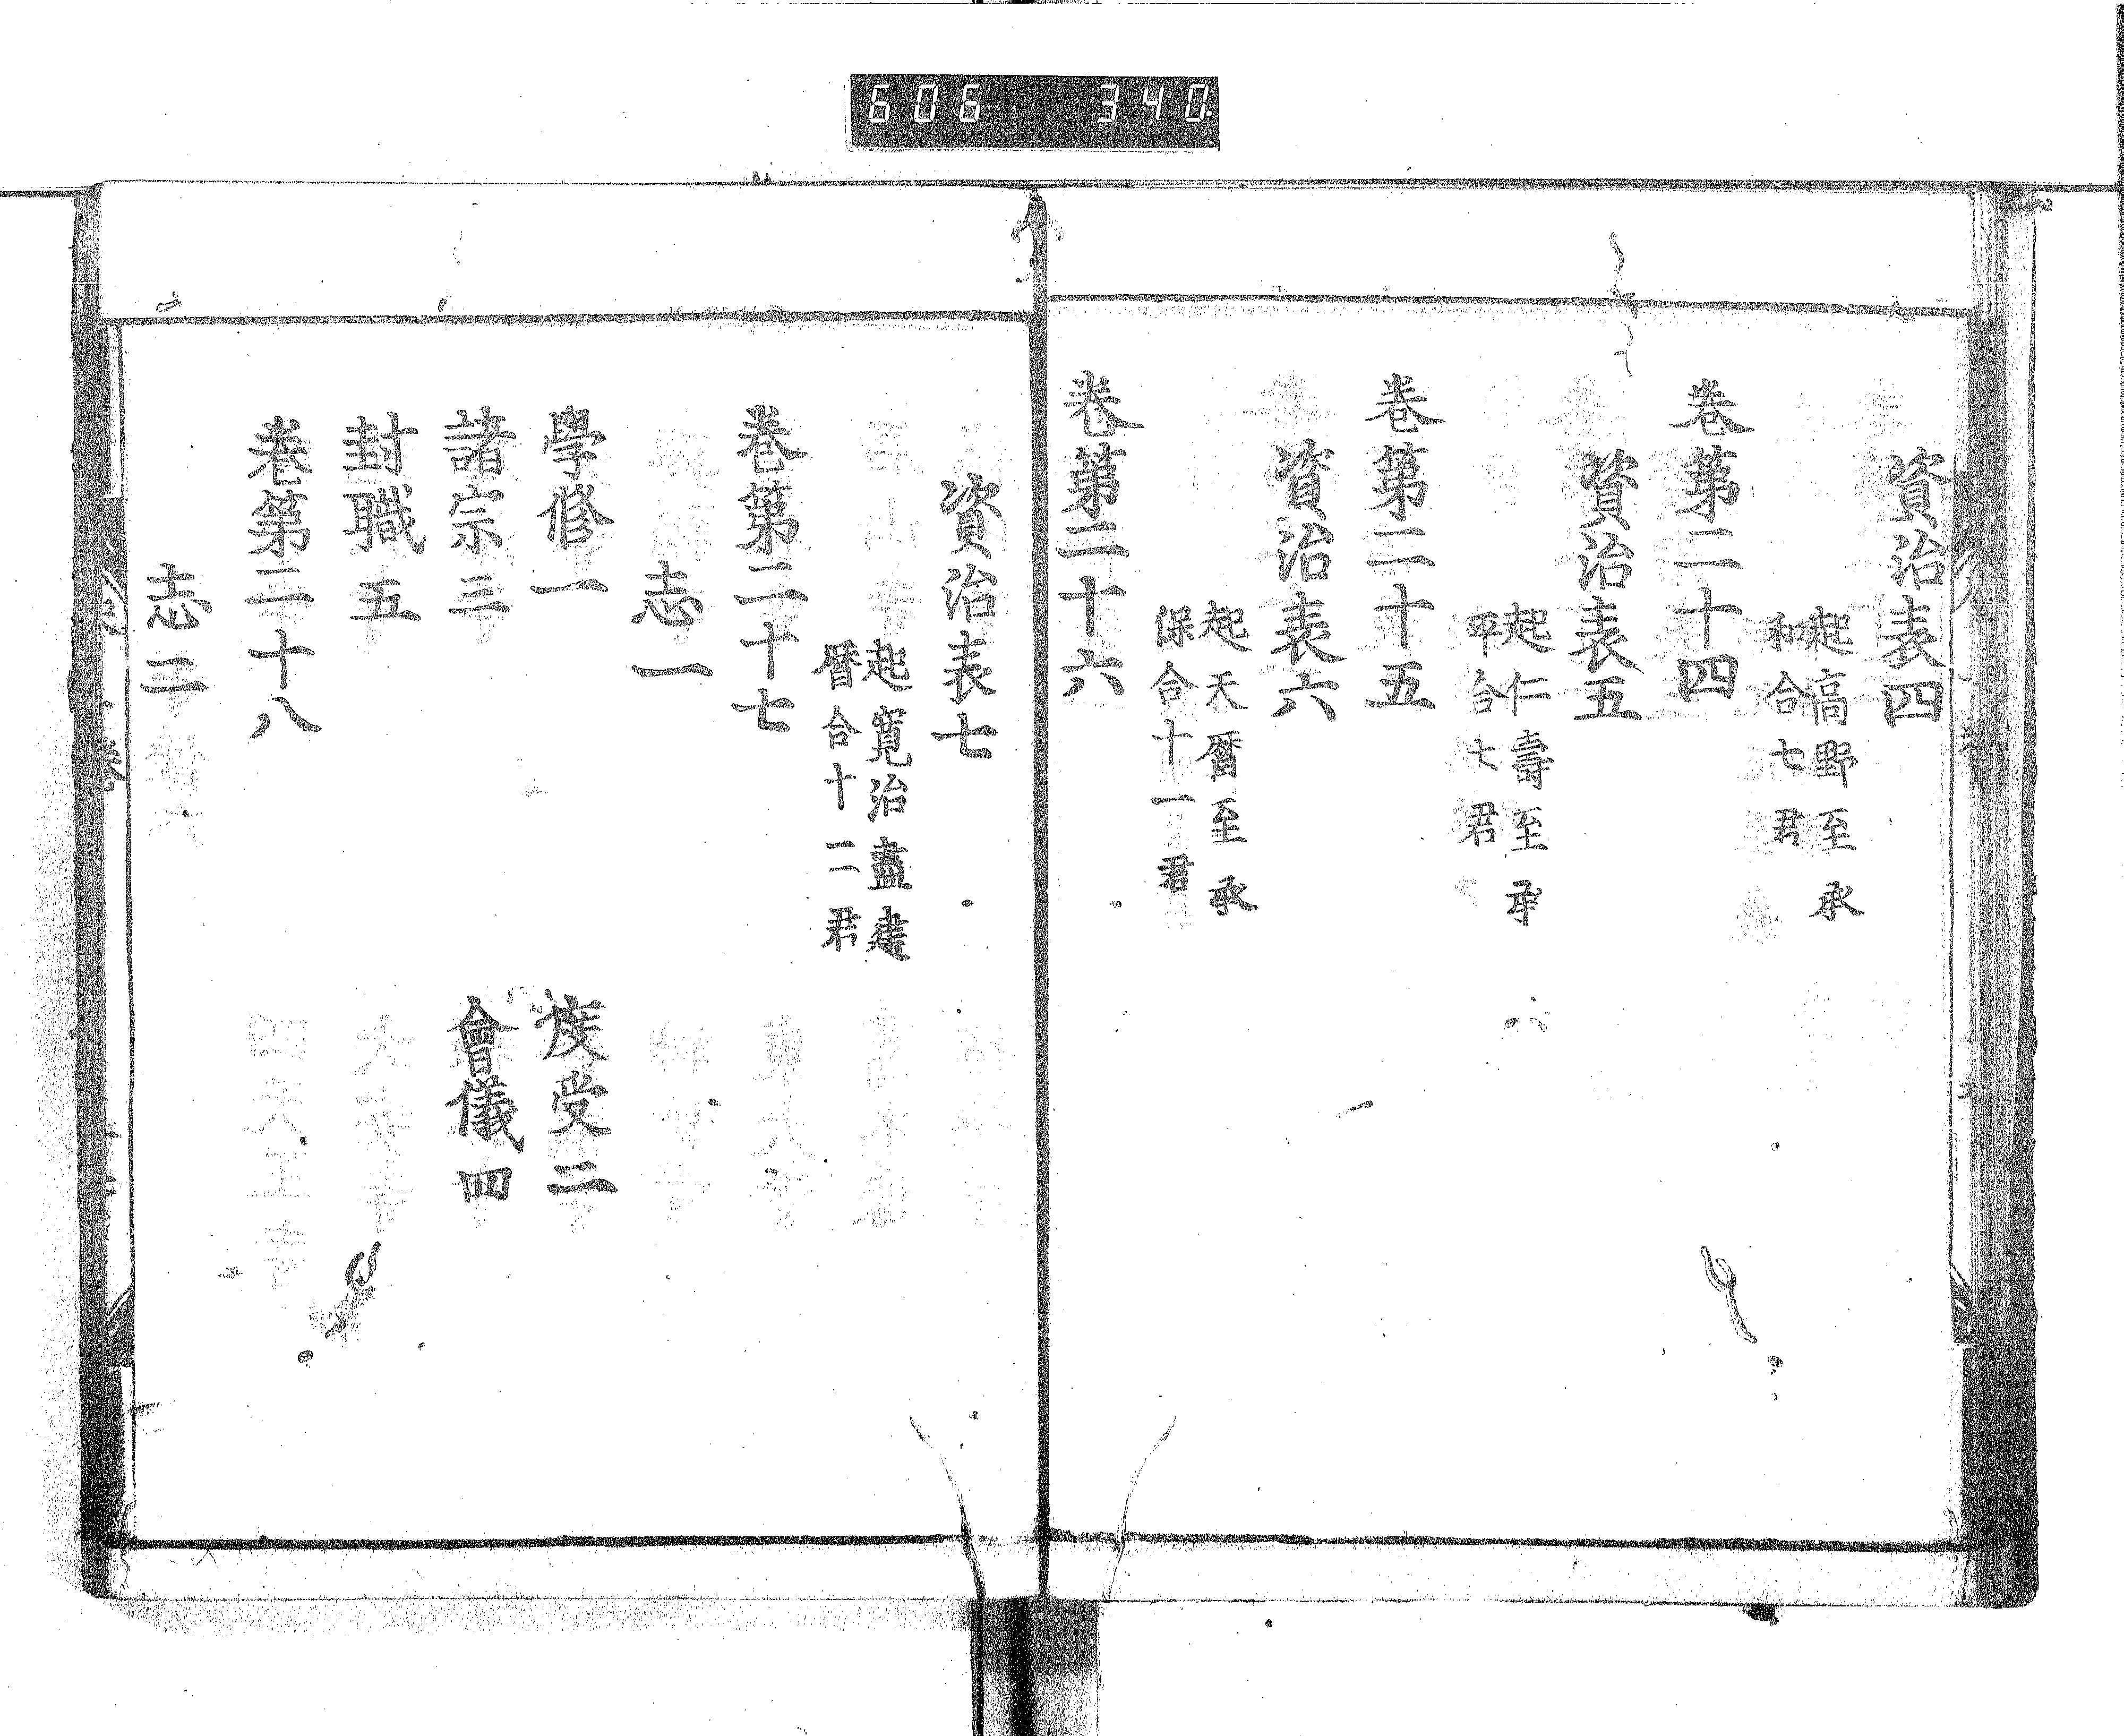 606 340
資治表四
起高野至承
和合七君
卷第二十四
資治表五
起仁壽至承
平合七君
卷第二十五
資治表六
起天曆至承
保合十一君
卷第二十六
資治表七
起寬治盡建
曆合十二君
卷第二十七
志一
學修一 度受二
諸宗三 會儀四
封職五
卷第二十八
志二